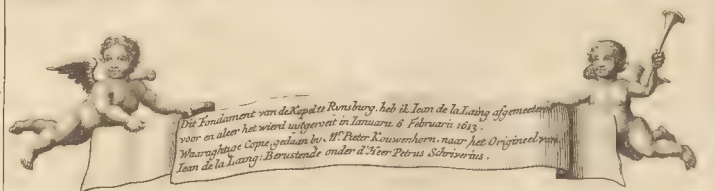 Dit Fondament van de Kapel te Rynsburg, heb ik Iean de la Laing afgemeeten
voor en aleer het wierd uytgeroeit in Ianuari. 6 Februarii 1613.
Waaraghtige Copie, gedaan by, Mr. Pieter Kouwenhorn, naar het Origineel van
Iean de la Laing: Berustende onder d'Heer Petrus Schriverius.